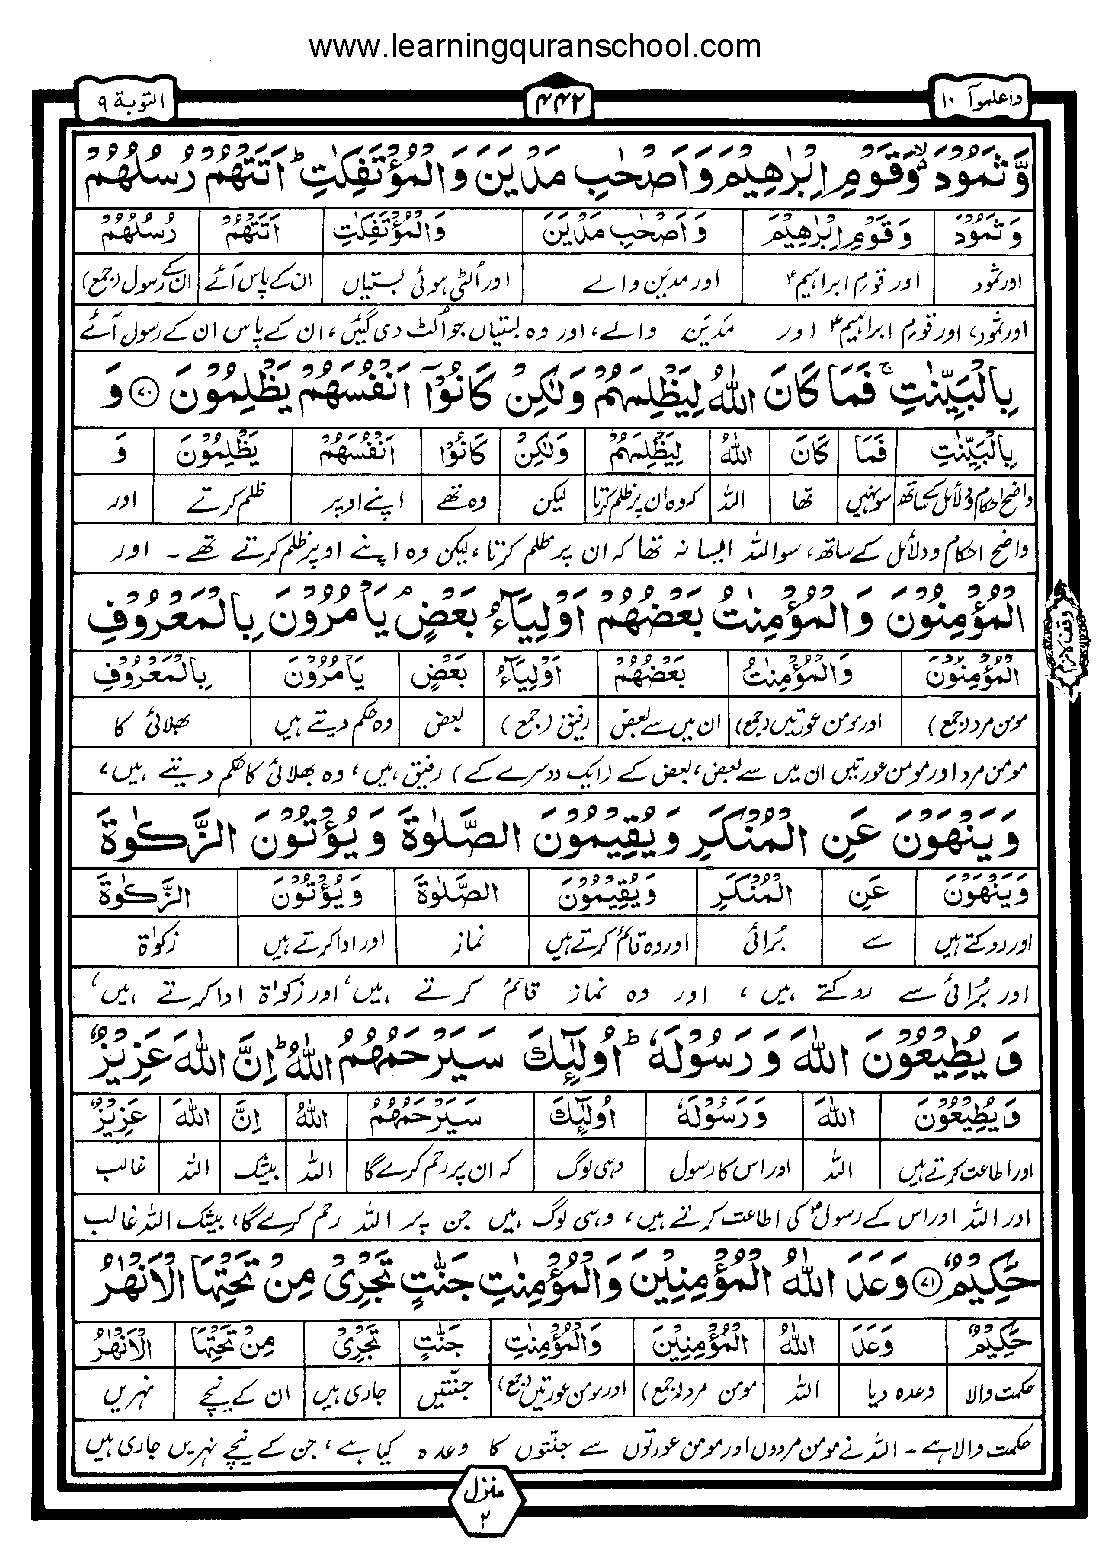 www.learningquranschool.com
واعلموآ ١٠
٤٤٢
التوبة ٩
وَّثَمُوْدَ ۙ۬ وَقَوْمِ اِبْرٰهِيْمَ وَاَصْحٰبِ مَدْيَنَ وَالْمُؤْتَفِكٰتِ ؕ اَتَتْهُمْ رُسُلُهُمْ
وَ ثَمُوْدَ وَ قَوْمِ اِبْرٰهِيْمَ وَ اَصْحٰبِ مَدْيَنَ وَالْمُؤْتَفِكٰتِ اَتَتْهُمْ رُسُلُهُمْ
اور ثمود اور قوم ابراہیم ؑ اور مدین والے اور اُلٹی ہوئی بستیاں ان کے پاس آئے ان کے رسول (جمع)
اور ثمود، اور قوم ابراہیم ؑ اور مَدیَن والے، اور وہ بستیاں جو اُلٹ دی گئیں، ان کے پاس ان کے رسول آئے
بِالْبَيِّنٰتِ ۚ فَمَا كَانَ اللّٰهُ لِيَظْلِمَهُمْ وَلٰكِنْ كَانُوْٓا اَنْفُسَهُمْ يَظْلِمُوْنَ ﴿٧٠﴾ وَ
بِالْبَيِّنٰتِ فَمَا كَانَ اللّٰهُ لِيَظْلِمَهُمْ وَلٰكِنْ كَانُوْٓا اَنْفُسَهُمْ يَظْلِمُوْنَ وَ
واضح احکام و دلائل کے ساتھ سو نہیں تھا اللہ کہ وہ ان پر ظلم کرتا لیکن وہ تھے اپنے اوپر ظلم کرتے اور
واضح احکام و دلائل کے ساتھ، سو اللہ ایسا نہ تھا کہ ان پر ظلم کرتا، لیکن وہ اپنے اوپر ظلم کرتے تھے ۔ اور
الْمُؤْمِنُوْنَ وَالْمُؤْمِنٰتُ بَعْضُهُمْ اَوْلِيَآءُ بَعْضٍ ۘ يَاْمُرُوْنَ بِالْمَعْرُوْفِ
الْمُؤْمِنُوْنَ وَالْمُؤْمِنٰتُ بَعْضُهُمْ اَوْلِيَآءُ بَعْضٍ يَاْمُرُوْنَ بِالْمَعْرُوْفِ
مومن مرد (جمع) اور مومن عورتیں (جمع) ان میں سے بعض رفیق (جمع) بعض وہ حکم دیتے ہیں بھلائی کا
مومن مرد اور مومن عورتیں ان میں سے بعض، بعض کے (ایک دوسرے کے) رفیق ہیں، وہ بھلائی کا حکم دیتے ہیں،
وَيَنْهَوْنَ عَنِ الْمُنْكَرِ وَيُقِيْمُوْنَ الصَّلٰوةَ وَيُؤْتُوْنَ الزَّكٰوةَ
وَيَنْهَوْنَ عَنِ الْمُنْكَرِ وَيُقِيْمُوْنَ الصَّلٰوةَ وَيُؤْتُوْنَ الزَّكٰوةَ
اور روکتے ہیں سے بُرائی اور وہ قائم کرتے ہیں نماز اور ادا کرتے ہیں زکوٰۃ
اور بُرائی سے روکتے ہیں، اور وہ نماز قائم کرتے ہیں، اور زکوٰۃ ادا کرتے ہیں،
وَيُطِيْعُوْنَ اللّٰهَ وَرَسُوْلَهٗ ؕ اُولٰٓئِكَ سَيَرْحَمُهُمُ اللّٰهُ ؕ اِنَّ اللّٰهَ عَزِيْزٌ
وَيُطِيْعُوْنَ اللّٰهَ وَرَسُوْلَهٗ اُولٰٓئِكَ سَيَرْحَمُهُمُ اللّٰهُ اِنَّ اللّٰهَ عَزِيْزٌ
اور اطاعت کرتے ہیں اللہ اور اس کا رسول وہی لوگ کہ ان پر رحم کرے گا اللہ بیشک اللہ غالب
اور اللہ اور اس کے رسولؐ کی اطاعت کرتے ہیں، وہی لوگ ہیں جن پر اللہ رحم کرے گا، بیشک اللہ غالب
حَكِيْمٌ ﴿٧١﴾ وَعَدَ اللّٰهُ الْمُؤْمِنِيْنَ وَالْمُؤْمِنٰتِ جَنّٰتٍ تَجْرِيْ مِنْ تَحْتِهَا الْاَنْهٰرُ
حَكِيْمٌ وَعَدَ اللّٰهُ الْمُؤْمِنِيْنَ وَالْمُؤْمِنٰتِ جَنّٰتٍ تَجْرِيْ مِنْ تَحْتِهَا الْاَنْهٰرُ
حکمت والا وعدہ دیا اللہ مومن مرد (جمع) اور مومن عورتیں (جمع) جنّتیں جاری ہیں ان کے نیچے نہریں
حکمت والا ہے ۔ اللہ نے مومن مردوں اور مومن عورتوں سے جنّتوں کا وعدہ کیا ہے، جن کے نیچے نہریں جاری ہیں
منزل
٢